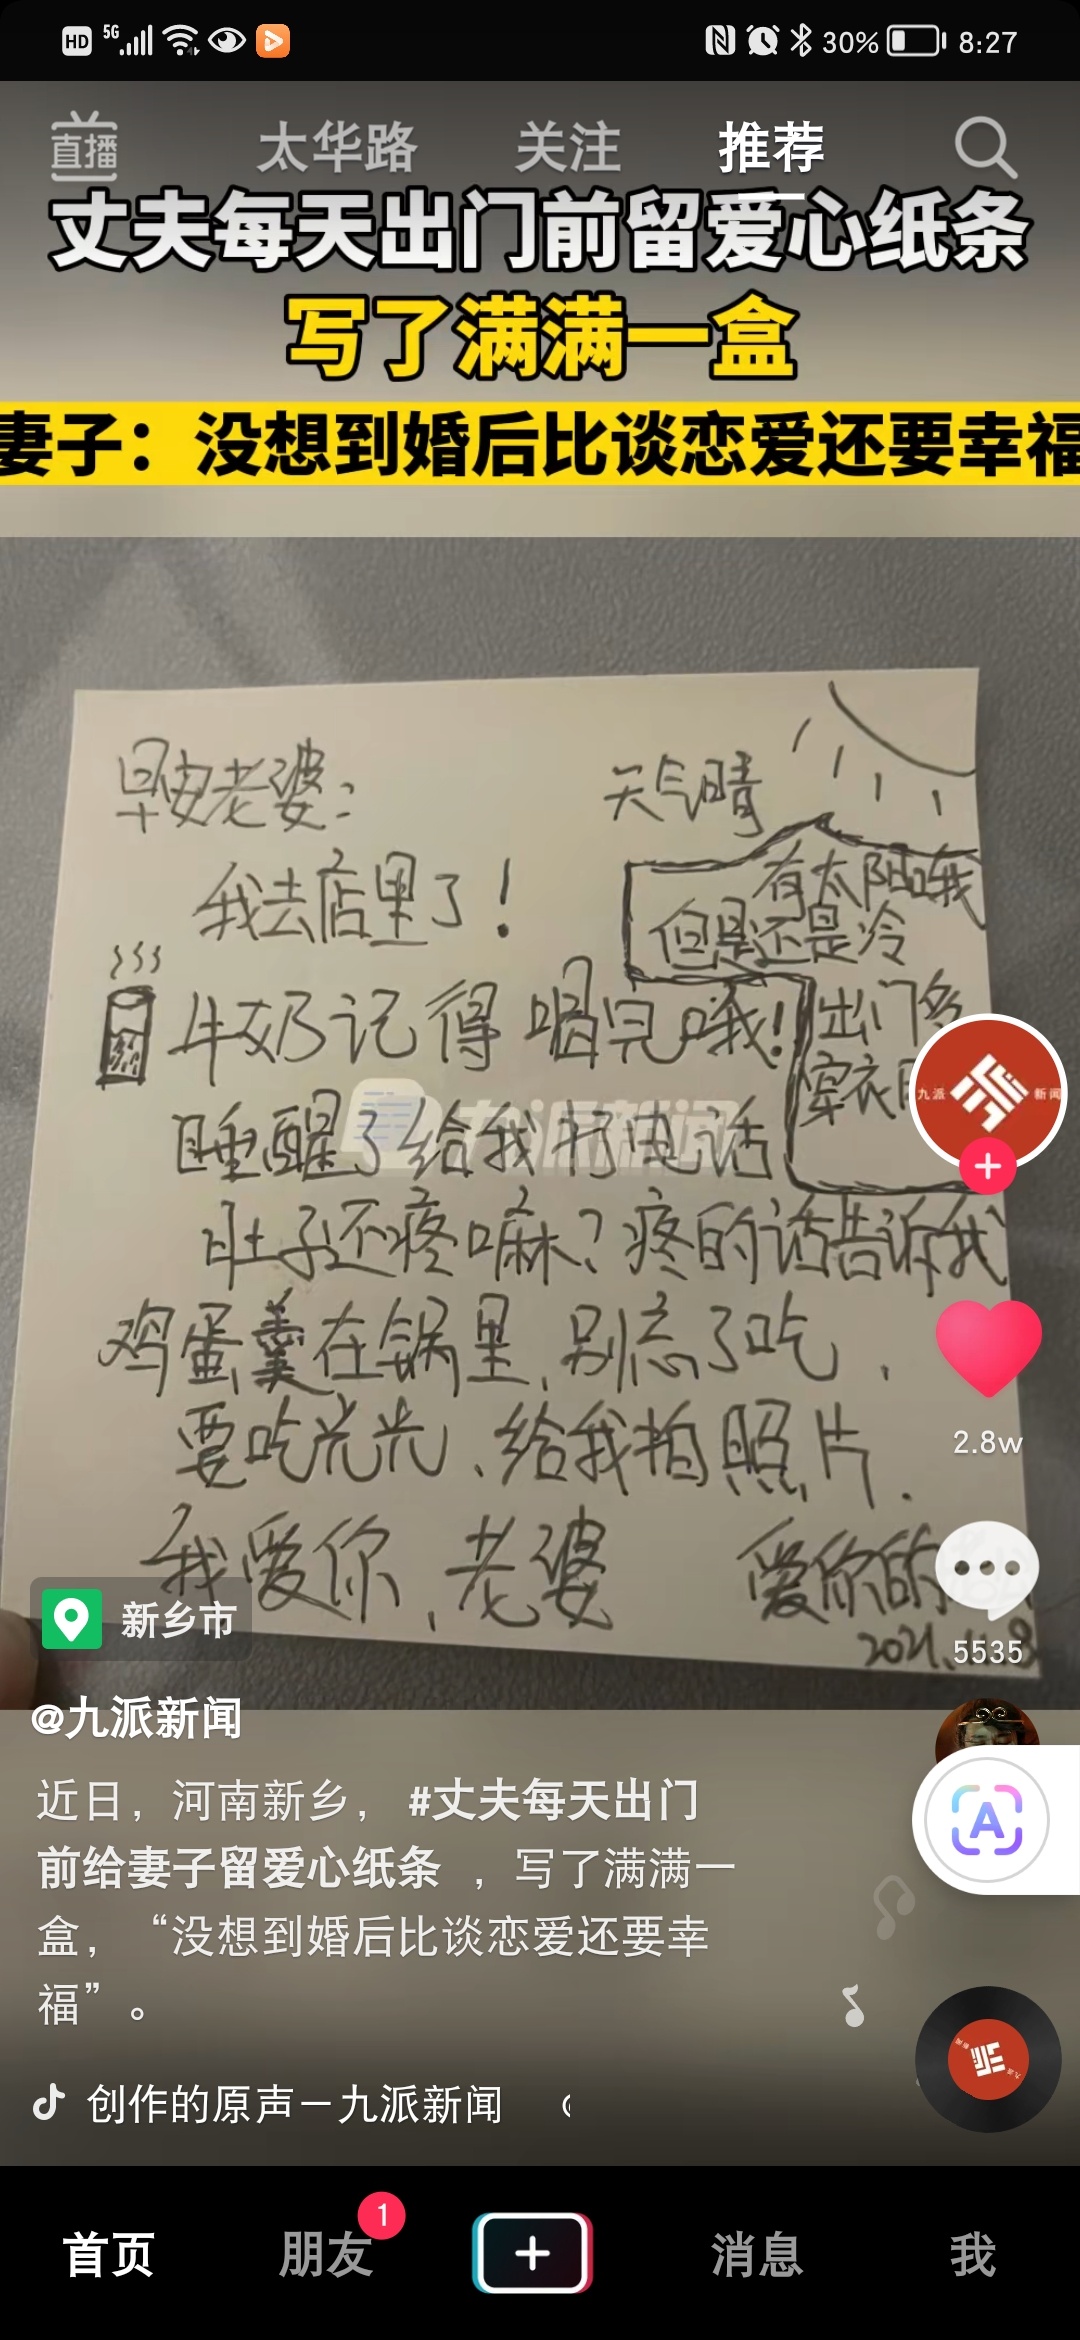 HD 5G 30% 8:27
直播 太华路 关注 推荐
丈夫每天出门前留爱心纸条
写了满满一盒
妻子：没想到婚后比谈恋爱还要幸福
早安老婆：
天气晴
我去店里了！
有太阳哦
但是还是冷
出门多
穿衣
牛奶记得喝完哦！
睡醒了给我打电话
肚子还疼嘛？疼的话告诉我
鸡蛋羹在锅里,别忘了吃.
要吃光光、给我拍照片.
我爱你,老婆
爱你的
2021.11.8
九派新闻
九派 新闻
2.8w
5535
新乡市
@九派新闻
近日，河南新乡，#丈夫每天出门
前给妻子留爱心纸条，写了满满一
盒，“没想到婚后比谈恋爱还要幸
福”。
A
创作的原声－九派新闻
首页 朋友 1 消息 我